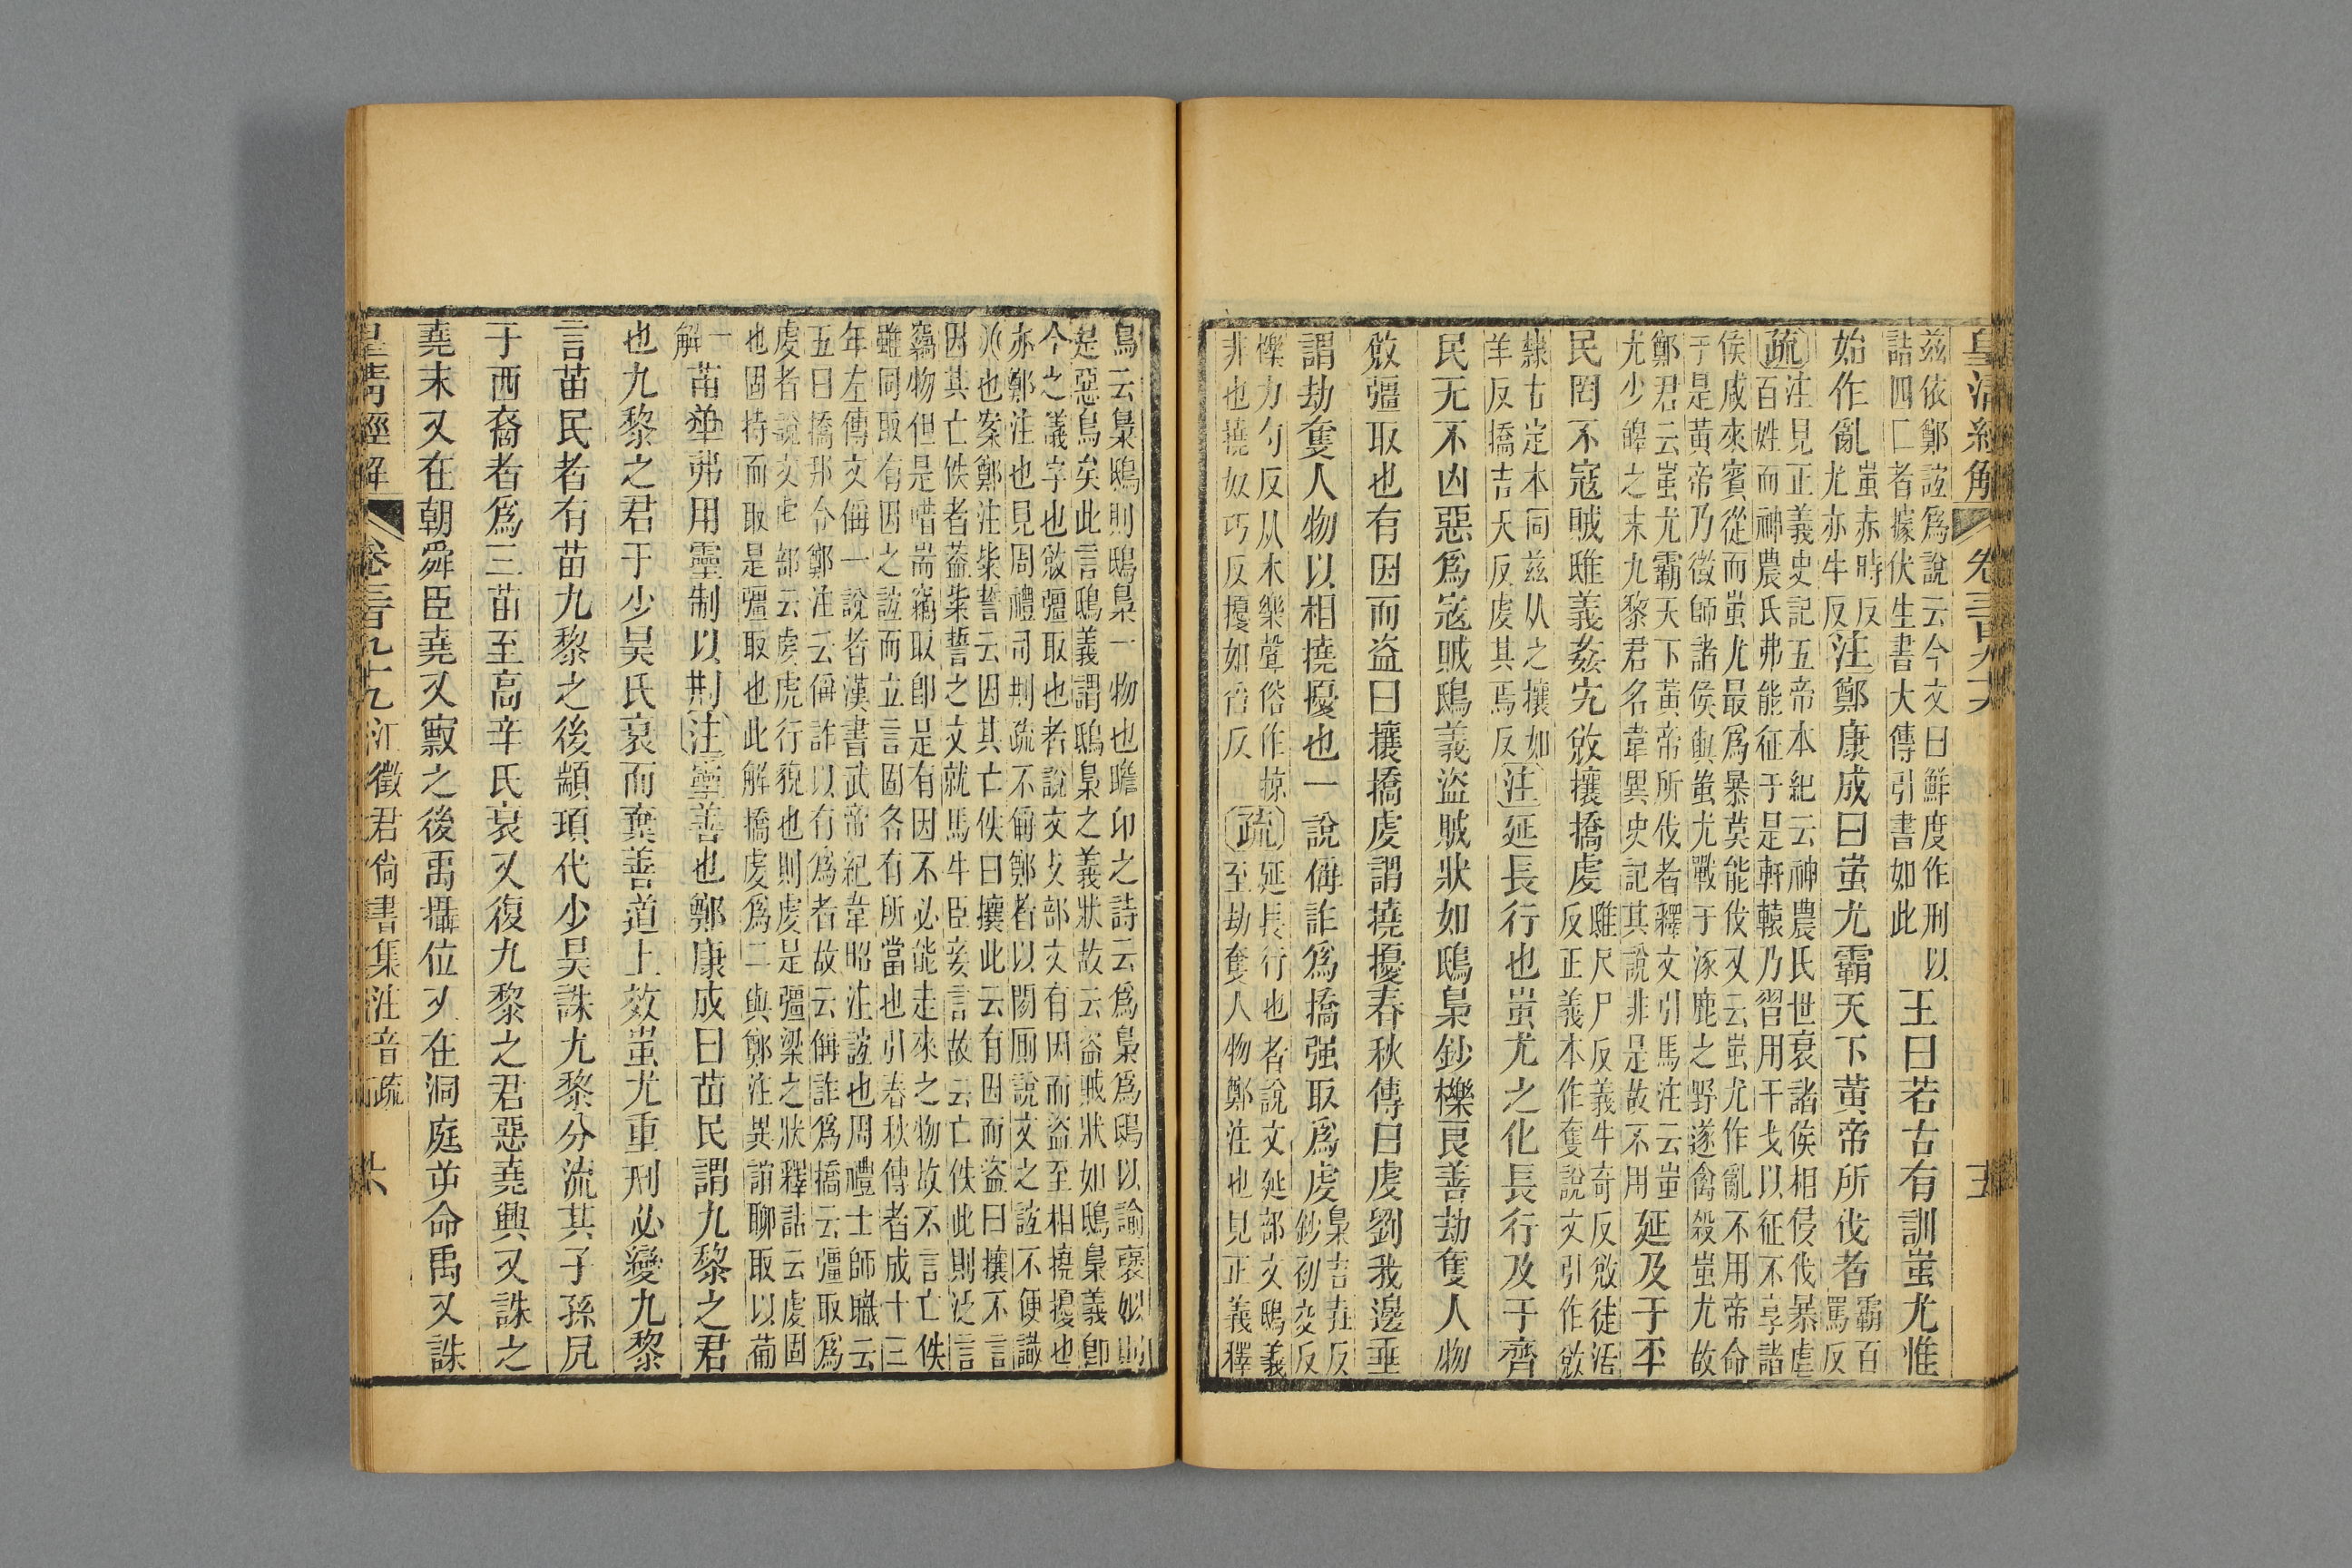 皇清經解 卷三百九十九
茲依鄭誼爲說云今文曰鮮度作刑以
詰四匚者據伏生書大傳引書如此
王曰若古有訓蚩尤惟
始作亂
蚩赤時反
尤亦牛反
注鄭康成曰蚩尤霸天下黃帝所伐者
霸百
罵反
疏注見正義史記五帝本紀云神農氏世衰諸侯相侵伐暴虐
百姓而神農氏弗能征于是軒轅乃習用干戈以征不享諸
侯咸來賓從而蚩尤最爲暴莫能伐又云蚩尤作亂不用帝命
于是黃帝乃徵師諸侯與蚩尤戰于涿鹿之野遂禽殺蚩尤故
鄭君云蚩尤霸天下黃帝所伐者釋文引馬注云蚩
尤少皞之末九黎君名韋異史記其說非是故不用
延及于平
民罔不寇賊鴟義姦宄敓攘撟虔
鴟尺尸反義牛奇反敓徒活
反正義本作奪說文引作敓
隸古定本同茲从之攘如
羊反撟吉夭反虔其焉反
注延長行也蚩尤之化長行及于齊
民无不凶惡爲寇賊鴟義盜賊狀如鴟梟鈔櫟良善劫奪人物
敓彊取也有因而盜曰攘撟虔謂撓擾春秋傳曰虔劉我邊垂
謂劫奪人物以相撓擾也一說偁詐爲撟强取爲虔
梟吉垚反
鈔初交反
櫟力勺反从木樂聲俗作掠
非也撓奴巧反擾如舀反
疏延長行也者說文㢟部文鴟義
至劫奪人物鄭注也見正義釋
鳥云梟鴟則鴟梟一物也瞻卬之詩云爲梟爲鴟以諭襃姒則
是惡鳥矣此言鴟義謂鴟梟之義狀故云盜賊狀如鴟梟義卽
今之議字也敓彊取也者說文攴部文有因而盜至相撓擾也
亦鄭注也見周禮司刑疏不偁鄭者以閒厠說文之誼不便識
㳄也案鄭注柴誓云因其亡佚曰攘此云有因而盜曰攘不言
因其亡佚者葢柴誓之文就馬牛臣妾言故云亡佚此則泛言
竊物但是唶耑竊取卽是有因不必能走來之物故不言亡佚
雖同取有因之誼而立言固各有所當也引春秋傳者成十三
年左傳文偁一說者漢書武帝紀韋昭注誼也周禮士師職云
五曰撟邦令鄭注云偁詐以有爲者故云偁詐爲撟云彊取爲
虔者說文虍部云虔虎行皃也則虔是彊梁之狀釋詁云虔固
也固持而取是彊取也此解撟虔爲二與鄭注異誼聊取以葡
一
解
苗㽯弗用靈制以刑注靈善也鄭康成曰苗民謂九黎之君
也九黎之君于少昊氏衰而棄善道上效蚩尤重刑必變九黎
言苗民者有苗九黎之後顓頊代少昊誅九黎分流其子孫凥
于西裔者爲三苗至高辛氏衰又復九黎之君惡堯興又誅之
堯末又在朝舜臣堯又竄之後禹攝位又在洞庭㡿命禹又誅
皇清經解 卷三百九十九 江徵君尙書集注音疏